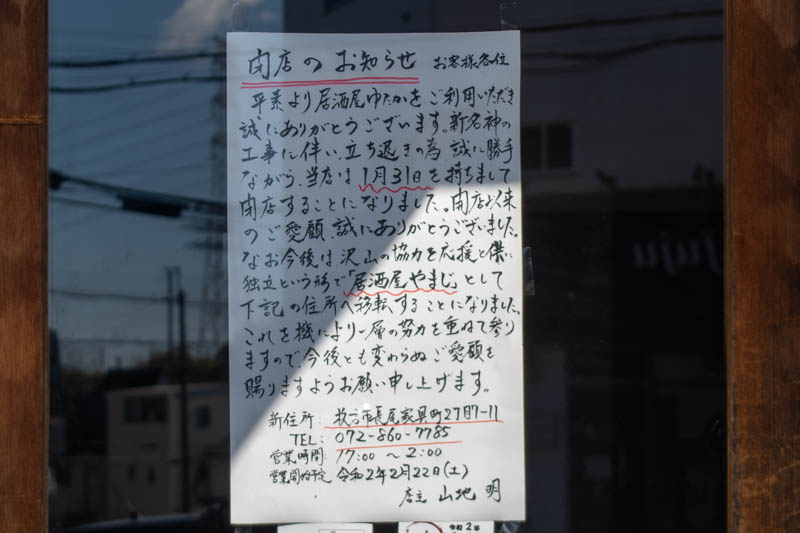 閉店のお知らせ お客様各位
平素より居酒屋ゆたかをご利用いただき
誠にありがとうございます。新名神の
工事に伴い、立ち退きの為、誠に勝手
ながら、当店は1月31日を持ちまして
閉店することになりました。開店以来
のご愛顧、誠にありがとうございました。
なお今後は沢山の協力を応援と供に
独立という形で「居酒屋やまじ」として
下記の住所へ移転することになりました。
これを機により一層の努力を重ねて参り
ますので今後とも変わらぬご愛顧を
賜りますようお願い申し上げます。
新住所:枚方市長尾家具町2丁目7-11
TEL:072-860-7785
営業時間:17:00~2:00
営業開始予定 令和2年2月22日(土)
店主 山地 明
令和2年
juju